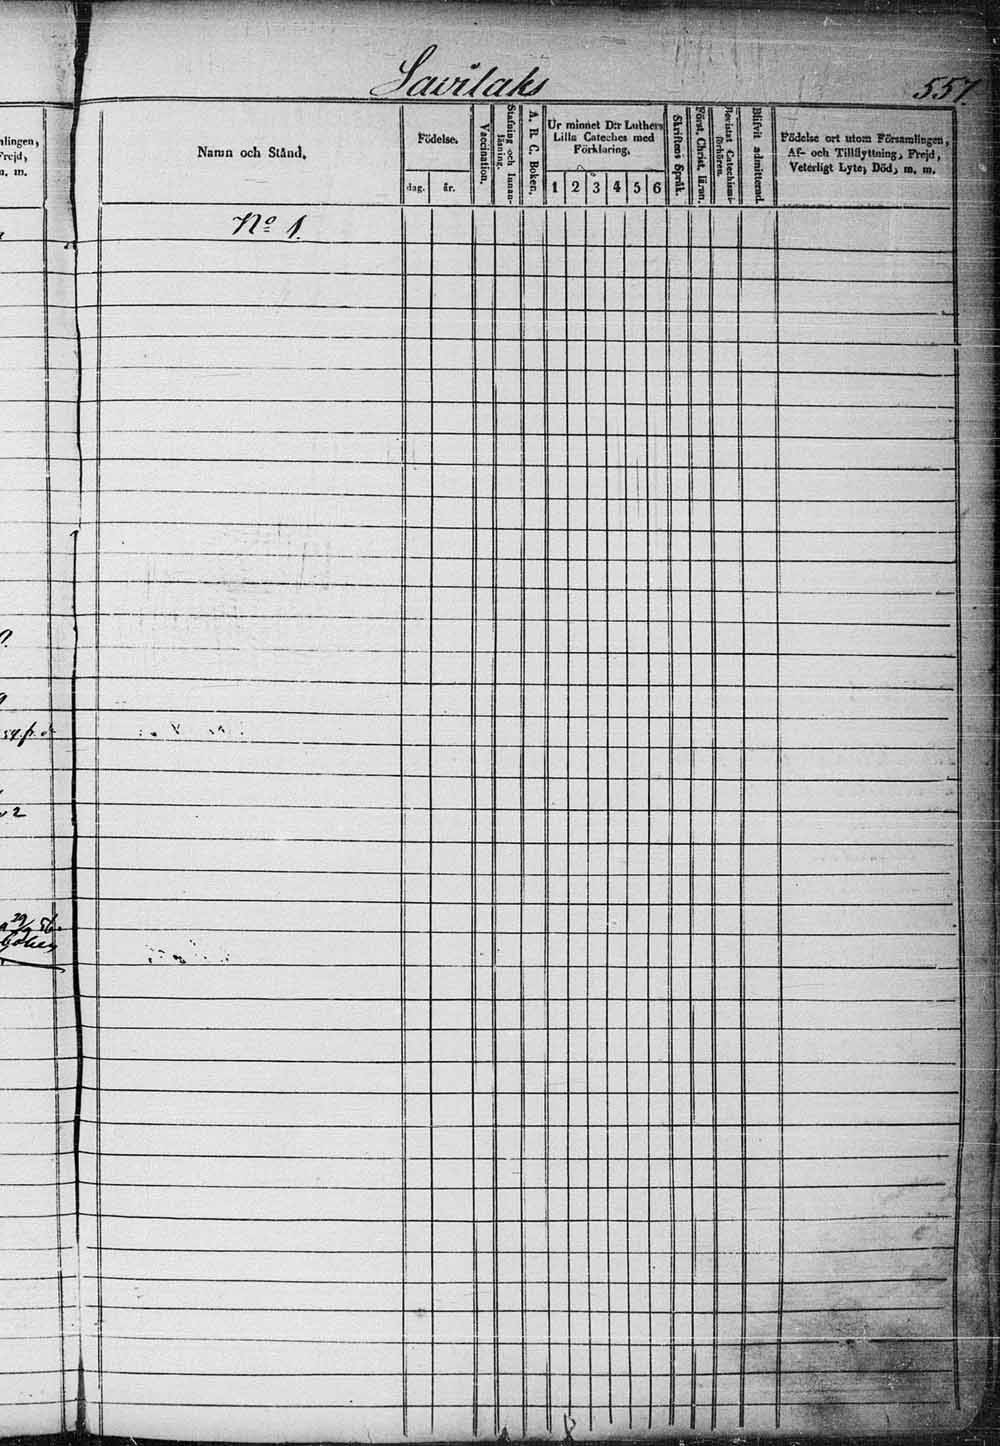 Savilaks
557.
mlingen,
Frejd,
m. m.
Namn och Stånd.
Födelse.
dag. år.
Vaccination.
Stafning och Innan-
läsning.
A. B. C. Boken.
Ur minnet D:r Luthers
Lilla Cateches med
Förklaring.
1 2 3 4 5 6
Skriftens Språk.
Först. Christ. läran.
Bevistat Catechismi-
förhören.
Blifvit admitterad.
Födelse ort utom Församlingen,
Af- och Tillflyttning, Frejd,
Veterligt Lyte, Död, m. m.
No 1.
54. fr.
2
29/9 56.